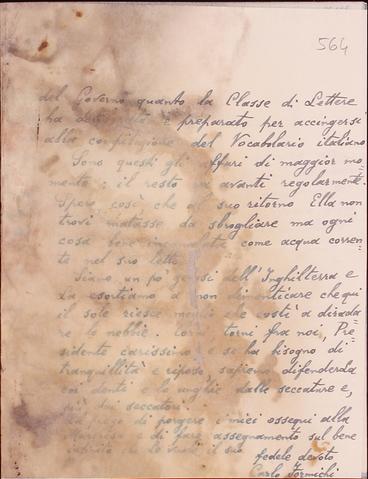 564
del Governo quanto la Classe di Lettere
ha preparato per accingersi
alla compilazione del Vocabolario italiano
Sono questi gli affari di maggior mo=
mento: il resto va avanti regolarmente.
Spero così che al suo ritorno Ella non
trovi matasse da sbrogliare ma ogni
cosa bene incanalata come acqua corren=
te nel suo letto.
Siamo un po' gelosi dell'Inghilterra e
La esortiamo a non dimenticare che qui
il sole riesce meglio che costì a dirada=
re le nebbie. Torni, torni fra noi, Pre=
sidente carissimo, e se ha bisogno di
tranquillità e riposo, sapremo difenderla
coi denti e le unghie dalle seccature e,
dai seccatori.
di porgere i miei ossequi alla
e di fare assegnamento sul bene
che Le vuole il suo fedele devoto
Carlo Formichi